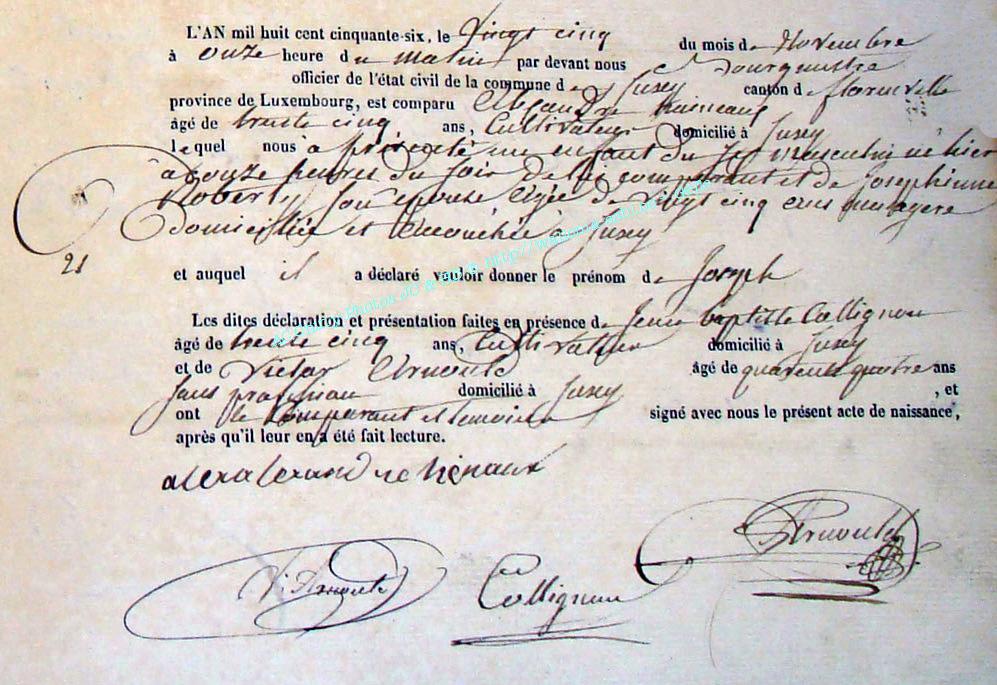 L'AN mil huit cent cinquante-six, le Vingt cinq du mois de Novembre
à onze heure du matin par devant nous
officier de l'état civil de la commune de Jusey canton de florenville
province de Luxembourg, est comparu Alexandre
âgé de trente cinq ans, Cultivateur domicilié à Jusey
lequel nous a présenté un enfant du sexe masculin né hier
à onze heures du soir de lui comparant et de Josephinne
Robert, son épouse agée de vingt cinq ans menagère
domiciliée et accouchée à Jusey
21
et auquel il a déclaré vouloir donner le prénom de Joseph
Les dites déclaration et présentation faites en présence de Jean baptiste Collignon
âgé de trente cinq ans, Cultivateur domicilié à Jusey
et de Victor Arnould âgé de quarente quatre ans
sans profession domicilié à Jusey , et
ont le Comparant et temoins signé avec nous le présent acte de naissance,
après qu'il leur en a été fait lecture.
V. Arnould Collignon Arnould